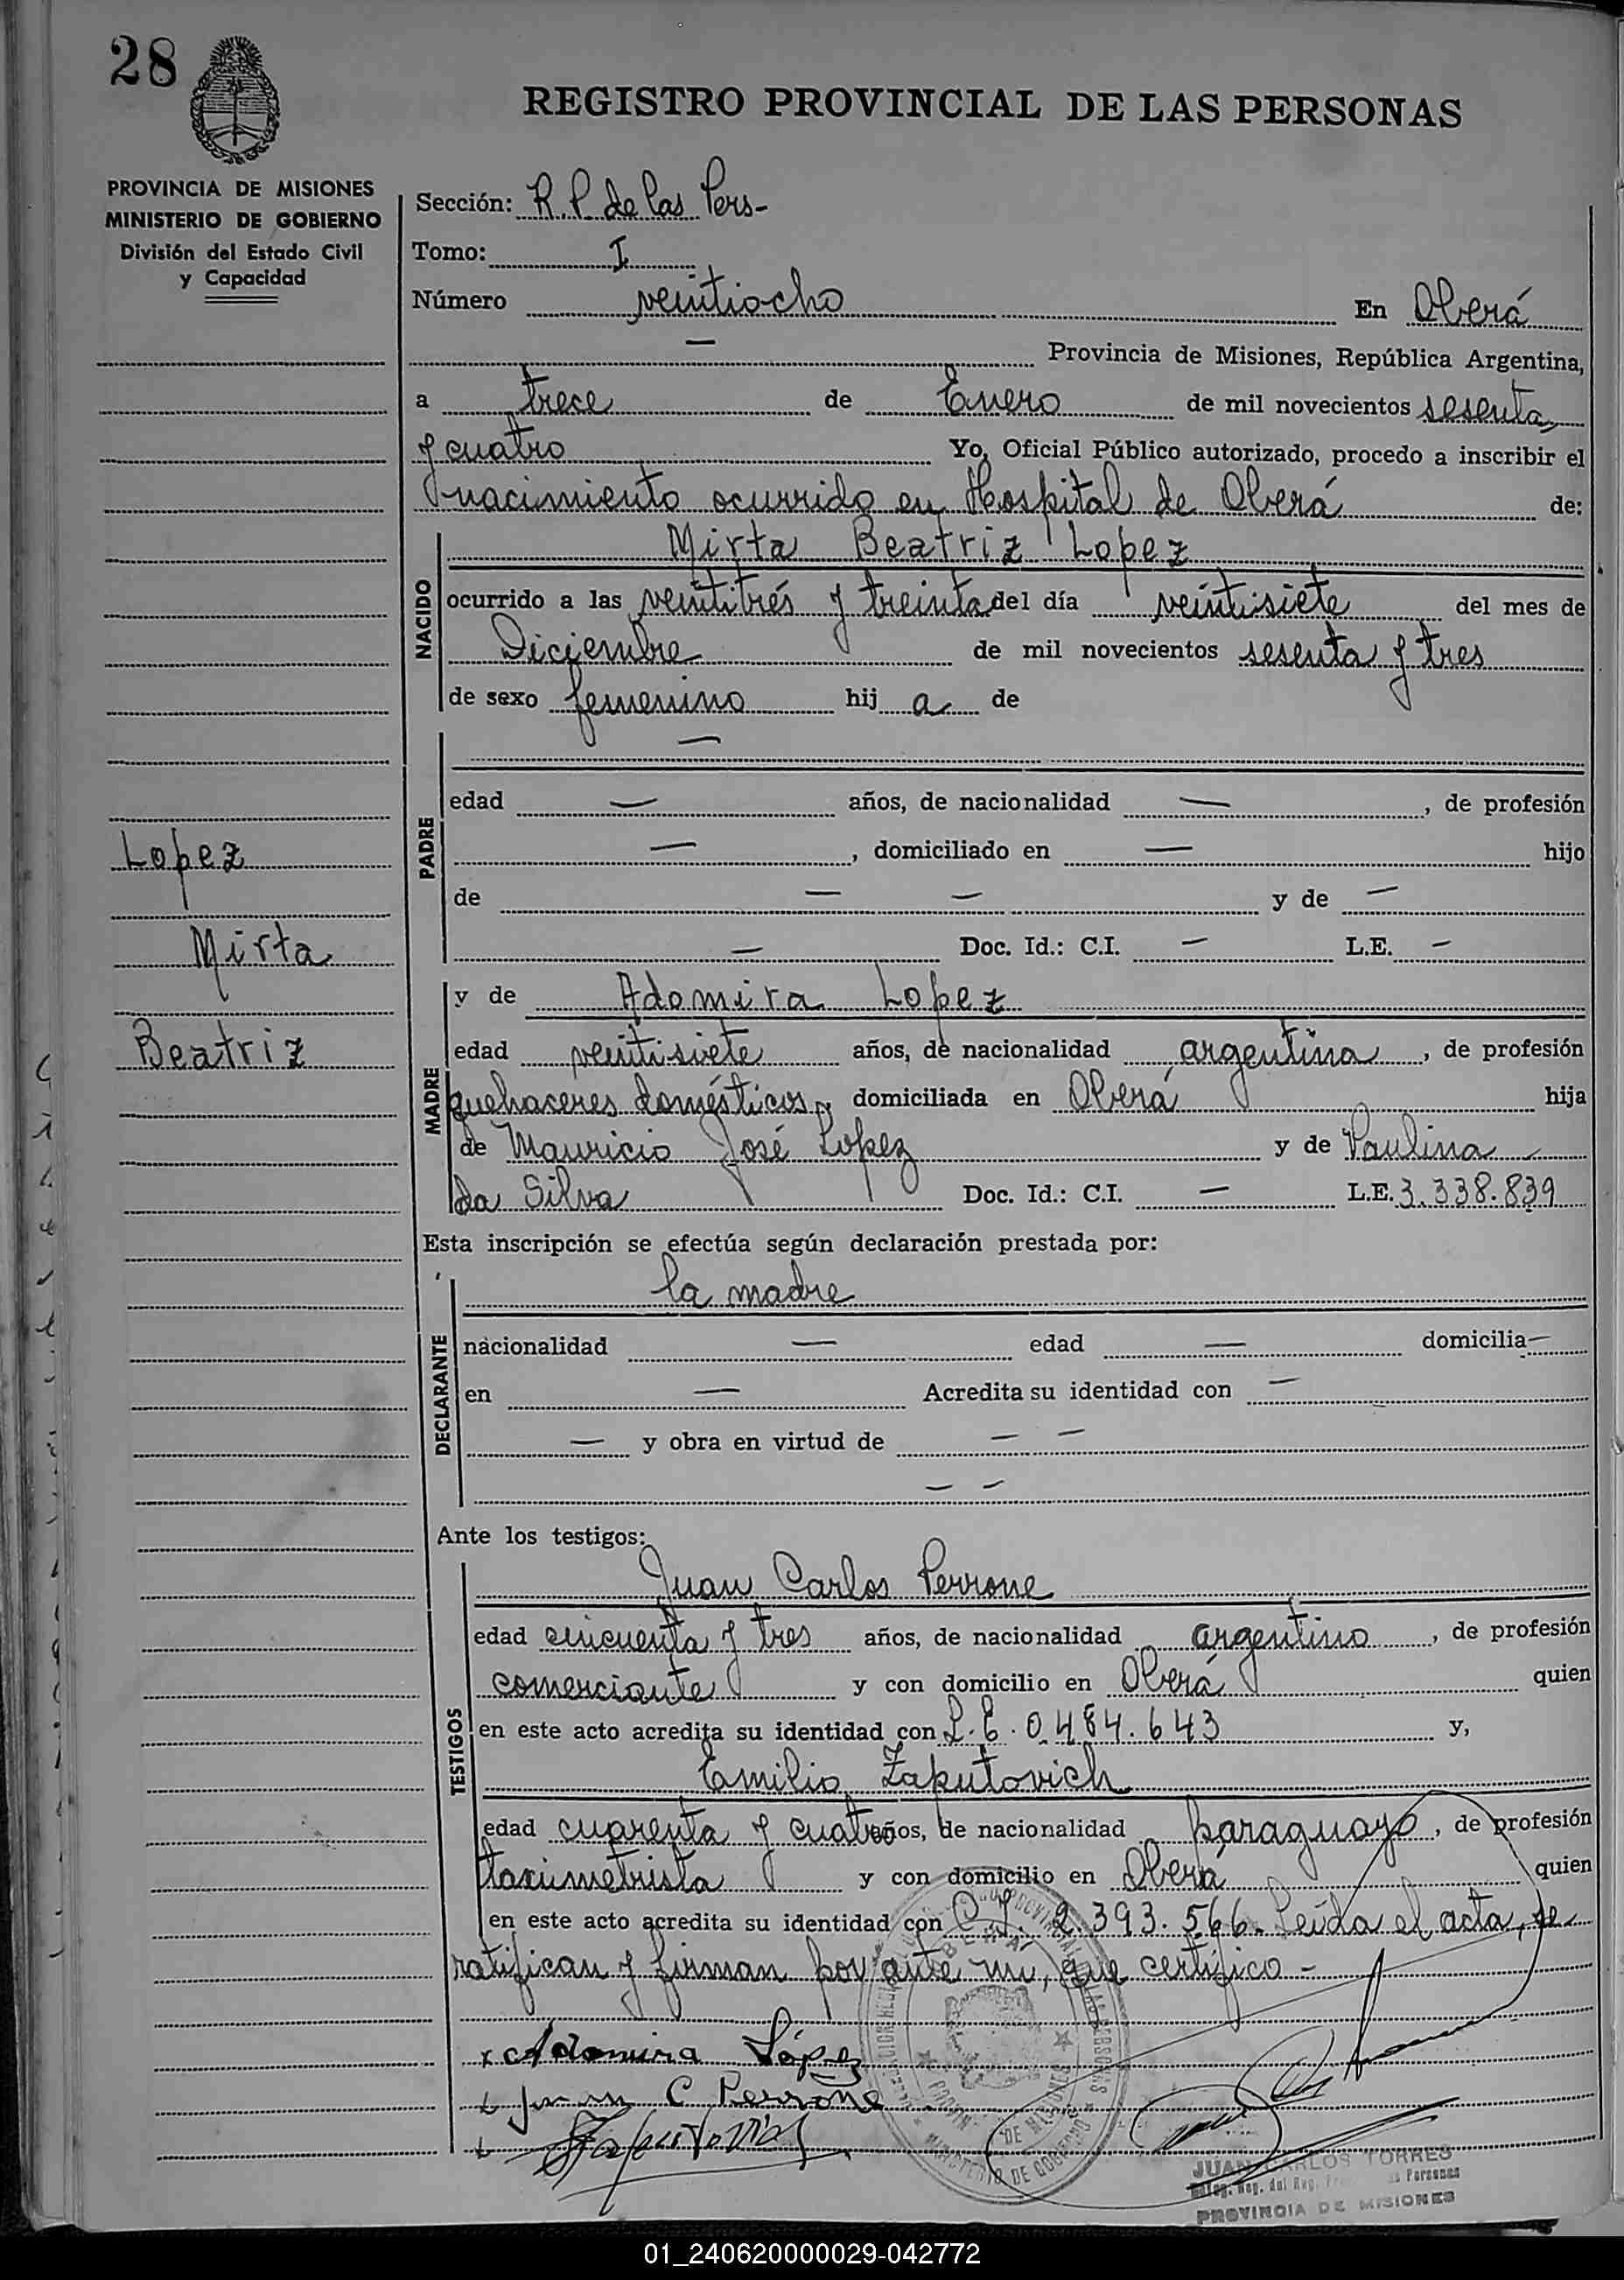 28
REGISTRO PROVINCIAL DE LAS PERSONAS
PROVINCIA DE MISIONES
MINISTERIO DE GOBIERNO
División del Estado Civil
y Capacidad
Sección: R.P. de las Pers-
Tomo: I
Número veintiocho En Oberá
— Provincia de Misiones, República Argentina,
a trece de Enero de mil novecientos sesenta
y cuatro Yo, Oficial Público autorizado, procedo a inscribir el
nacimiento ocurrido en Hospital de Oberá de:
NACIDO
Mirta Beatriz Lopez
ocurrido a las veintitrés y treinta del día veintisiete del mes de
Diciembre de mil novecientos sesenta y tres
de sexo femenino hij a de
PADRE
—
edad — años, de nacionalidad —, de profesión
—, domiciliado en — hijo
de — — y de —
— Doc. Id.: C.I. — L.E. —
Lopez
Mirta
Beatriz
MADRE
y de Adomira Lopez
edad veintisiete años, de nacionalidad argentina, de profesión
quehaceres domésticos, domiciliada en Oberá hija
de Mauricio José Lopez y de Paulina
da Silva Doc. Id.: C.I. — L.E. 3.338.839
Esta inscripción se efectúa según declaración prestada por:
DECLARANTE
la madre
nacionalidad — edad — domicilia—
en — Acredita su identidad con —
— y obra en virtud de — —
— —
Ante los testigos:
TESTIGOS
Juan Carlos Perrone
edad cincuenta y tres años, de nacionalidad argentino, de profesión
comerciante y con domicilio en Oberá quien
en este acto acredita su identidad con L.E. 0.484.643 y,
Emilio Zaputovich
edad cuarenta y cuatro años, de nacionalidad paraguayo, de profesión
taximetrista y con domicilio en Oberá quien
en este acto acredita su identidad con 2.393.566. Leída el acta, se
ratifican y firman por ante mi, que certifico -
x Adomira López
x Juan C Perrone
x Zaputovich
OBERÁ
DE MISIONES
MINISTERIO DE GOBIERNO
JUAN CARLOS TORRES
PROVINCIA DE MISIONES
01_240620000029-042772